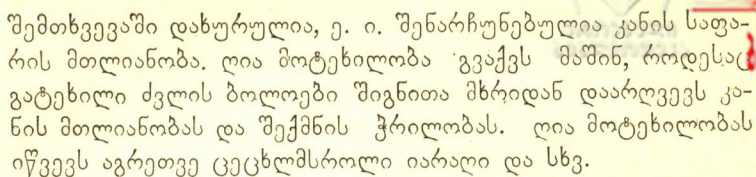 შემთხვევაში დახურულია, ე. ი. შენარჩუნებულია კანის საფა-
რის მთლიანობა. ღია მოტეხილობა გვაქვს მაშინ, როდესაც
გატეხილი ძვლის ბოლოები შიგნითა მხრიდან დაარღვევს კა-
ნის მთლიანობას და შექმნის ჭრილობას. ღია მოტეხილობას
იწვევს აგრეთვე ცეცხლმსროლი იარაღი და სხვ.